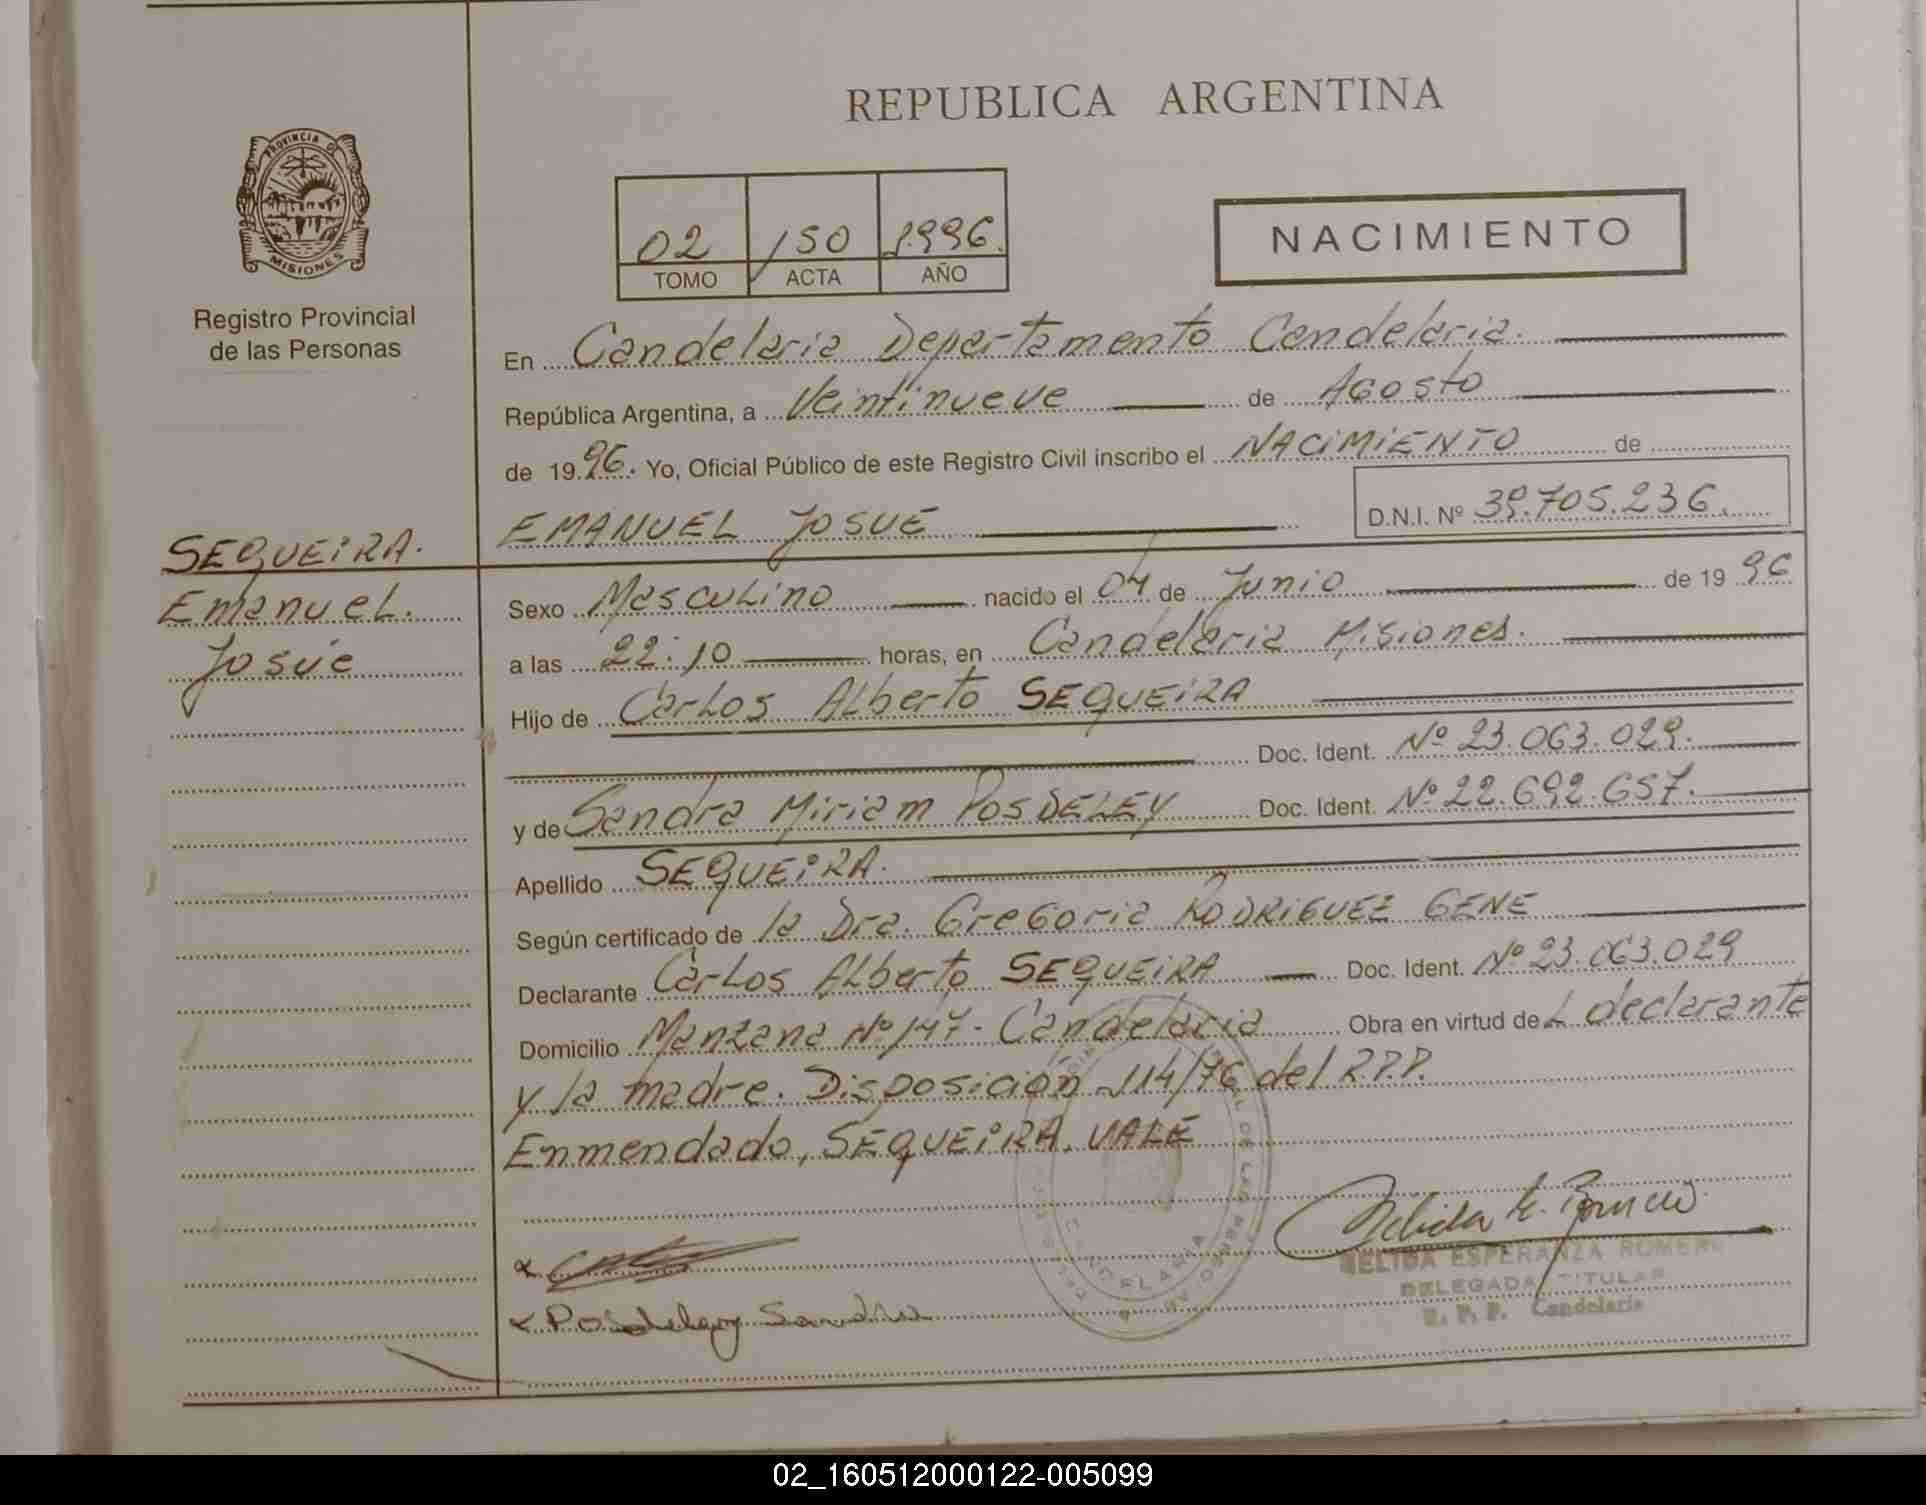 REPUBLICA ARGENTINA
PROVINCIA D
MISIONES
Registro Provincial
de las Personas
02 150 1996
TOMO ACTA AÑO
NACIMIENTO
En Candelaria Departamento Candelaria.
República Argentina, a Veintinueve de Agosto
de 1996. Yo, Oficial Público de este Registro Civil inscribo el NACIMIENTO de
EMANUEL JOSUE D.N.I. Nº 39.705.236.
SEQUEIRA.
Emanuel.
Josúe
Sexo Masculino nacido el 04 de Junio de 1996
a las 22:10 horas, en Candelaria Misiones.
Hijo de Carlos Alberto SEQUEIRA
Doc. Ident. Nº 23.063.029.
y de Sandra Miriam POSDELEY Doc. Ident. Nº 22.692.657.
Apellido SEQUEIRA.
Según certificado de la Dra. Gregoria RODRIGUEZ GENE
Declarante Carlos Alberto SEQUEIRA Doc. Ident. Nº 23.063.029
Domicilio Manzana Nº 147. Candelaria Obra en virtud del declarante
y la madre. Disposición 114/76 del R.P.P.
Enmendado, SEQUEIRA. VALE
Posdeley Sandra
Nelida E. Romero
NELIDA ESPERANZA ROMERO
DELEGADA TITULAR
R. P. P. Candelaria
02_160512000122-005099